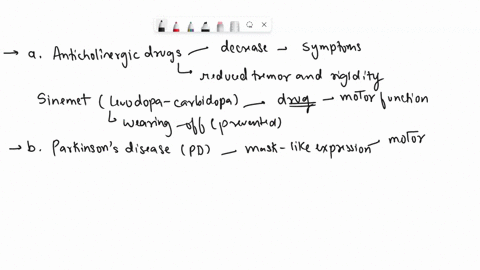 → a. Anticholinergic drugs — decrease → symptoms
↳ reduced tremor and rigidity
Sinemet (levodopa-carbidopa) — drug — motor function
↳ wearing-off (prevented)
→ b. Parkinson's disease (PD) — mask-like expression — motor